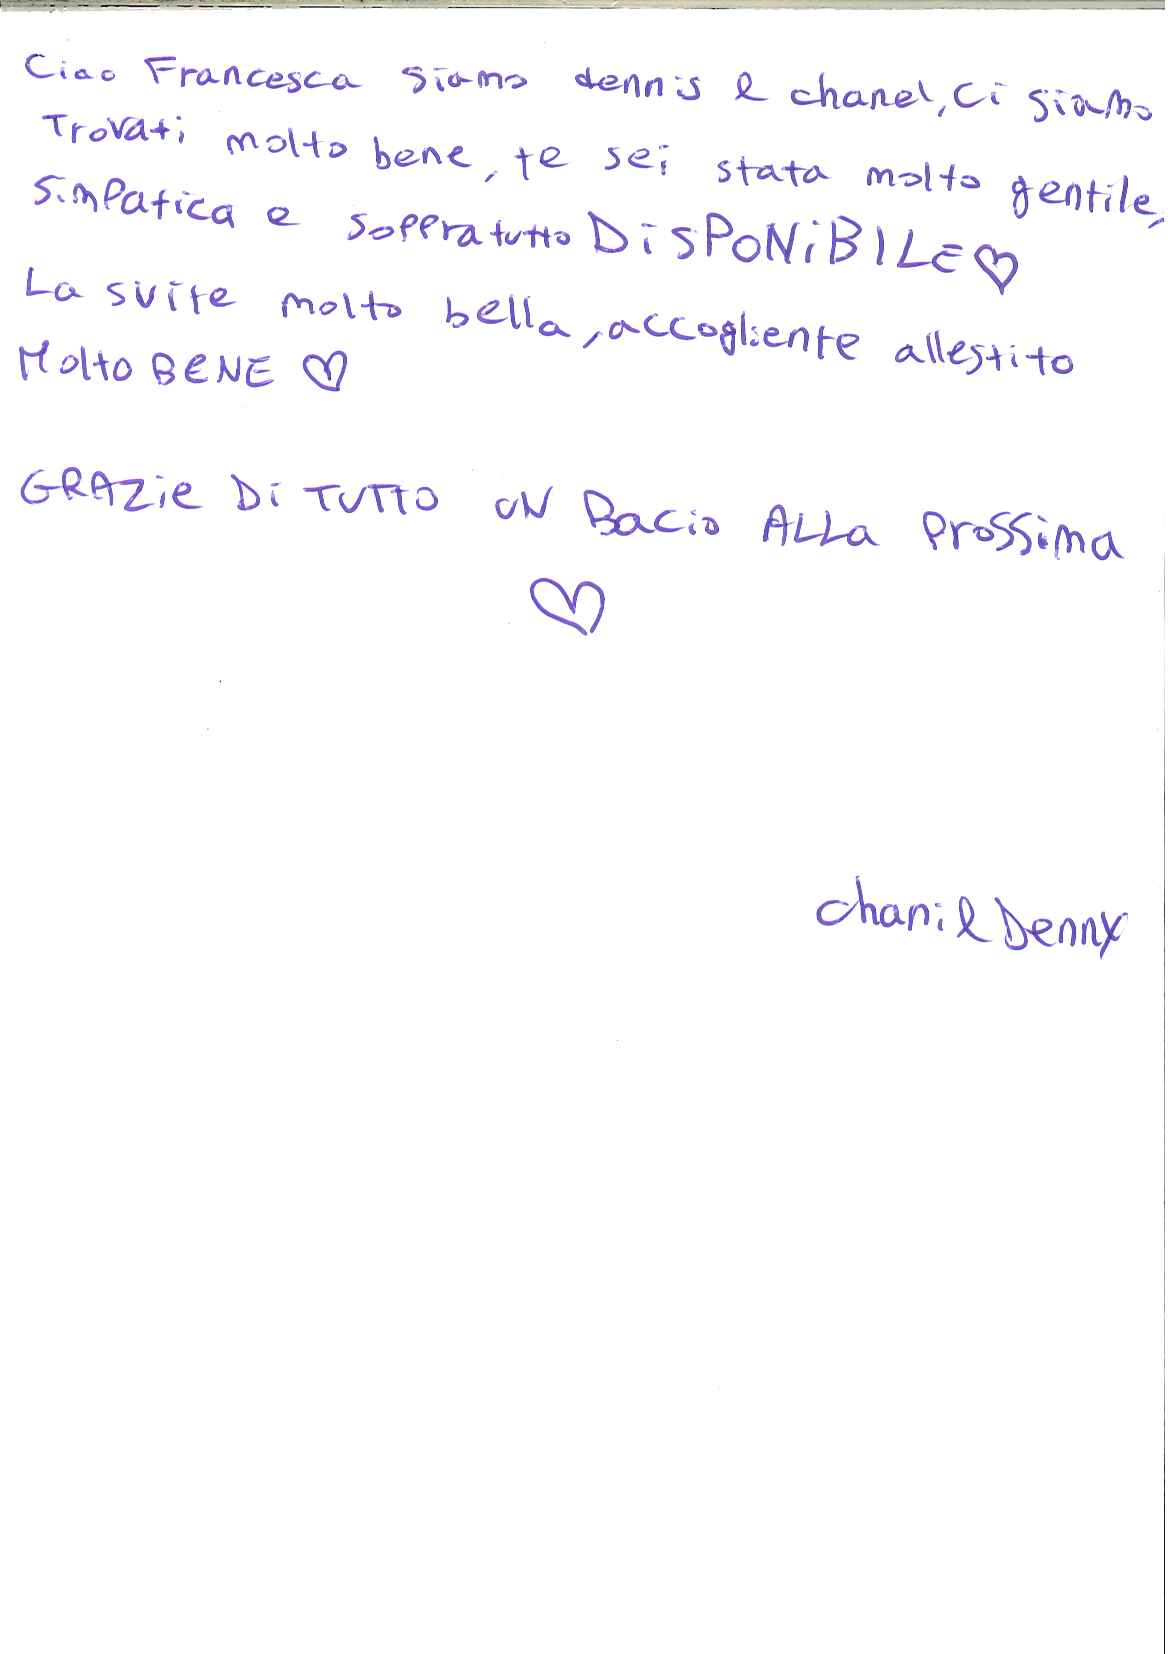 Ciao Francesca siamo dennis e chanel, ci siamo
Trovati molto bene, te sei stata molto gentile,
SimPatica e soppratutto DiSPONiBILE ♡
La suite molto bella, accogliente allestito
Molto BENE ♡
GRAZie Di TUTTO UN Bacio ALLa Prossima
♡
chani e Denny